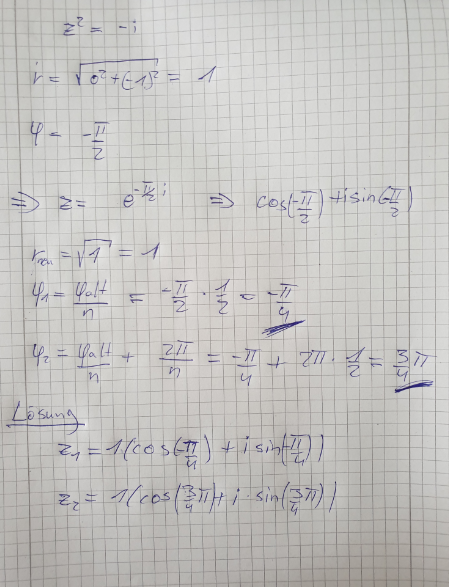 z² = -i
r = √(0²+(-1)²) = 1
φ = -π/2
=> z = e^(-π/2 i) => cos(-π/2) + i sin(-π/2)
r_neu = √1 = 1
φ₁ = φalt/n = -π/2 · 1/2 = -π/4
φ₂ = φalt/n + 2π/n = -π/4 + 2π · 1/2 = 3/4 π
Lösung
z₁ = 1(cos(-π/4) + i sin(-π/4))
z₂ = 1(cos(3/4 π) + i · sin(3/4 π))